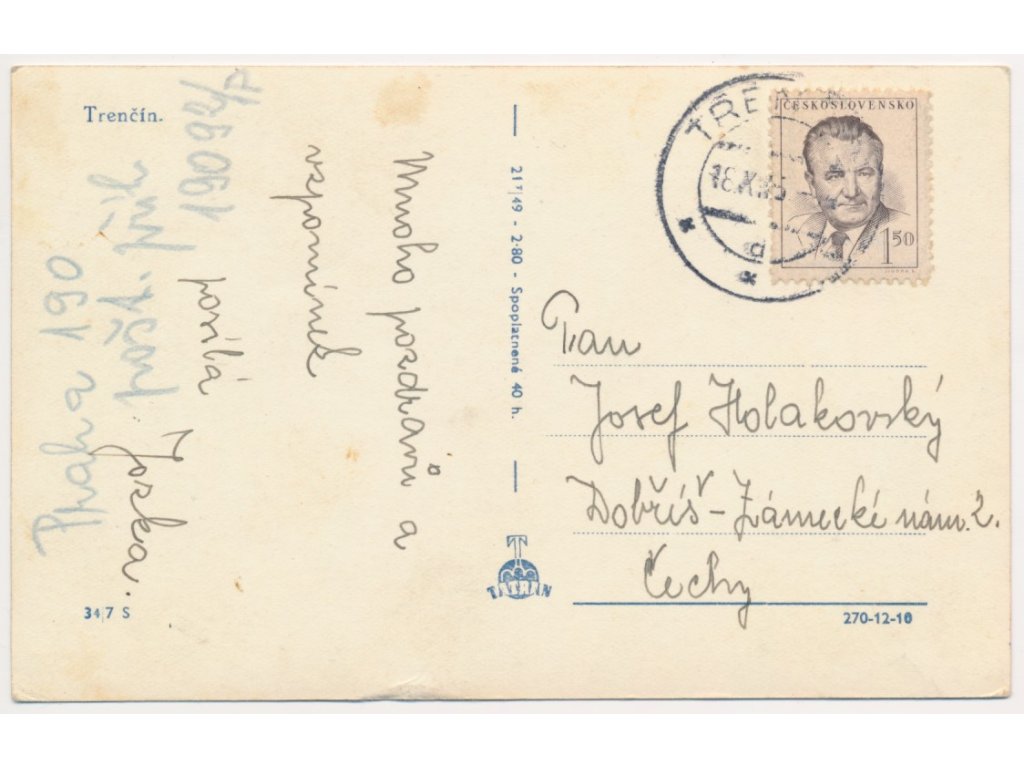 Trenčín.
Praha 190
pošt. přih.
19092/P
Mnoho pozdravů a
vzpomínek
posílá
Jozka.
34/7 S
21⁷/49 - 2·80 - Spoplatnené 40 h.
TATRAN
ČESKOSLOVENSKO
1 50
18.X.
d
Pan
Josef Holakovský
Dobříš - Zámecké nám. 2.
Čechy
270-12-10